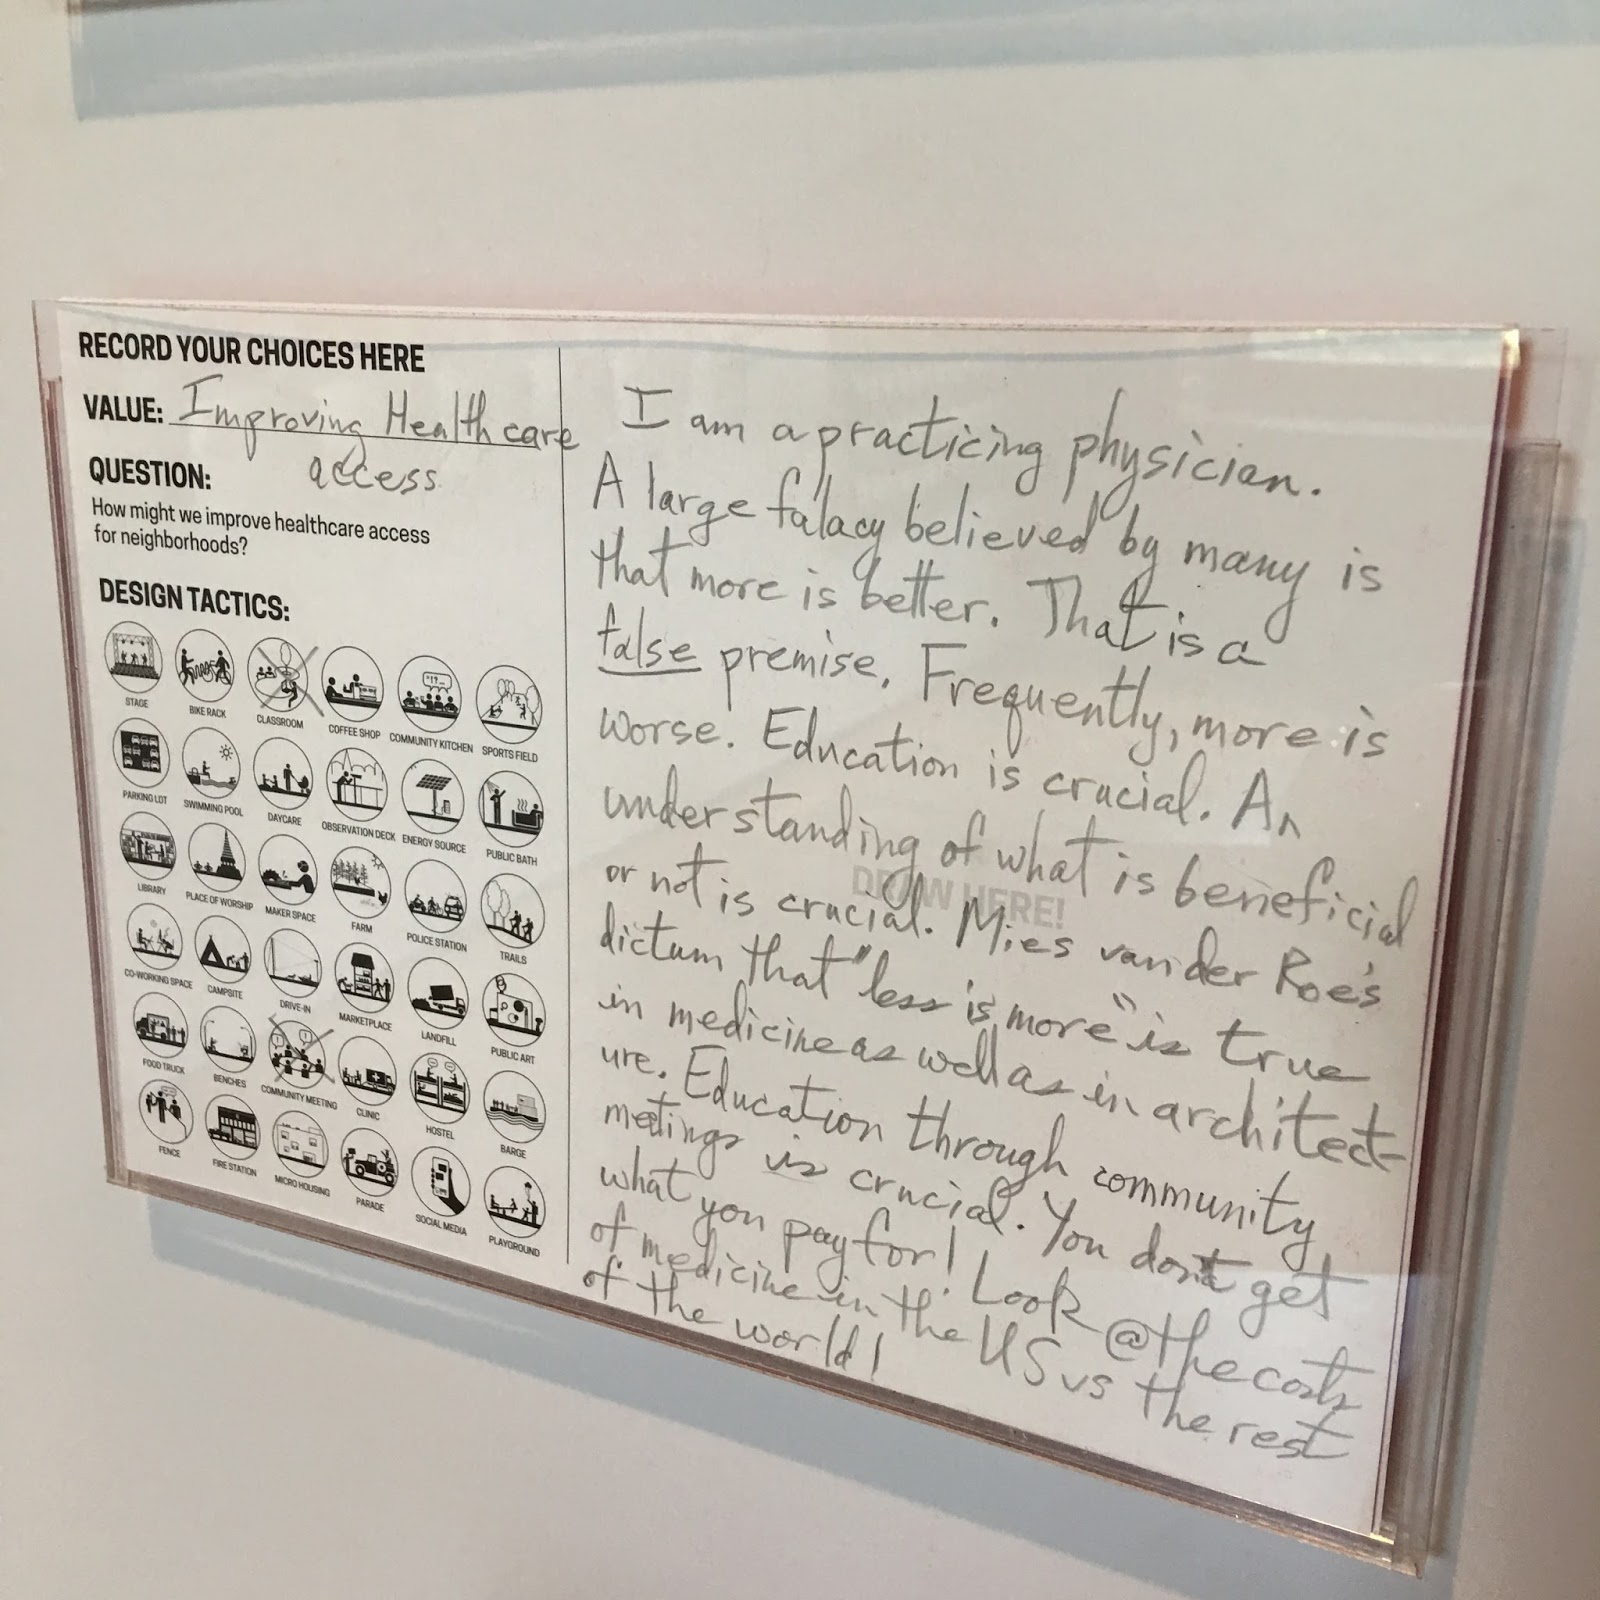 RECORD YOUR CHOICES HERE
VALUE: Improving Healthcare
access
QUESTION:
How might we improve healthcare access
for neighborhoods?
DESIGN TACTICS:
STAGE BIKE RACK CLASSROOM COFFEE SHOP COMMUNITY KITCHEN SPORTS FIELD
PARKING LOT SWIMMING POOL DAYCARE OBSERVATION DECK ENERGY SOURCE PUBLIC BATH
LIBRARY PLACE OF WORSHIP MAKER SPACE FARM POLICE STATION TRAILS
CO-WORKING SPACE CAMPSITE DRIVE-IN MARKETPLACE LANDFILL PUBLIC ART
FOOD TRUCK BENCHES COMMUNITY MEETING CLINIC HOSTEL BARGE
FENCE FIRE STATION MICRO HOUSING PARADE SOCIAL MEDIA PLAYGROUND
I am a practicing physician.
A large falacy believed by many is
that more is better. That is a
false premise. Frequently, more is
worse. Education is crucial. An
understanding of what is beneficial
DRAW HERE!
or not is crucial. Mies van der Roe's
dictum that "less is more" is true
in medicine as well as in architect-
ure. Education through community
meetings is crucial. You don't get
what you pay for! Look @ the costs
of medicine in the US vs the rest
of the world!